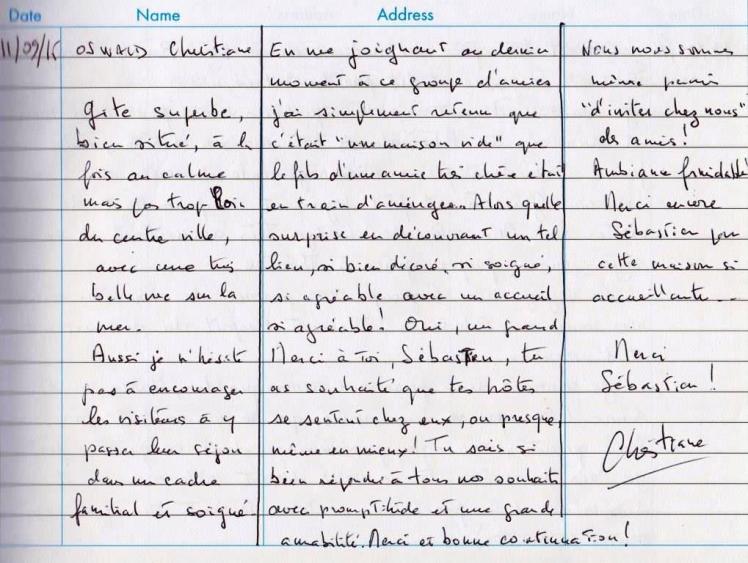 Date Name Address
11/09/15 OSWALD Christiane
Gîte superbe,
bien situé, à la
fois au calme
mais pas trop loin
du centre ville,
avec une très
belle vue sur la
mer.
Aussi je n'hésite
pas à encourager
les visiteurs à y
passer leur séjour
dans un cadre
familial et soigné.
En me joignant au dernier
moment à ce groupe d'amies
j'ai simplement retenu que
c'était "une maison vide" que
le fils d'une amie très chère était
en train d'aménager. Alors quelle
surprise en découvrant un tel
lieu, si bien décoré, si soigné,
si agréable avec un accueil
si agréable! Oui, un grand
Merci à Toi, Sébastien, tu
as souhaité que tes hôtes
se sentent chez eux, ou presque,
même en mieux! Tu sais si
bien répondre à tous nos souhaits
avec promptitude et une grande
amabilité. Merci et bonne continuation!
Nous nous sommes
même permis
"d'inviter chez nous"
des amis!
Ambiance formidable!
Merci encore
Sébastien pour
cette maison si
accueillante...
Merci
Sébastien!
Christiane